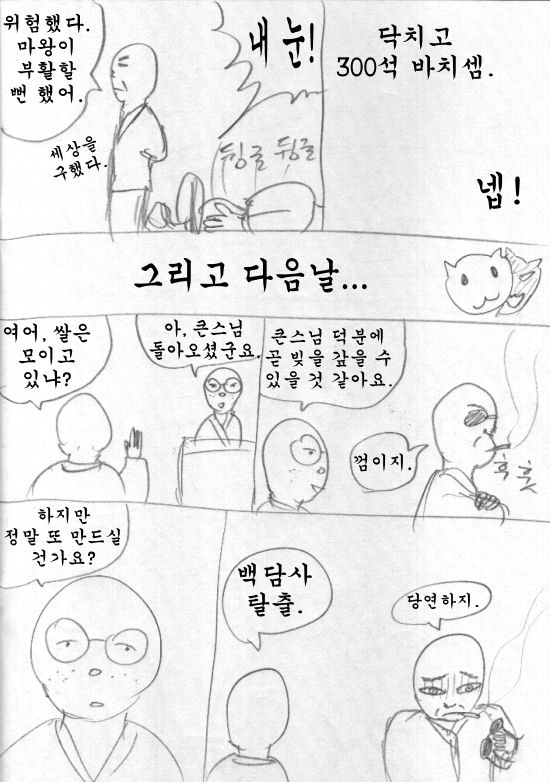 위험했다.
마왕이
부활할
뻔 했어.
세상을
구했다.
내 눈!
뒹굴 뒹굴
닥치고
300석 바치셈.
넵!
그리고 다음날...
여어, 쌀은
모이고
있냐?
아, 큰스님
돌아오셨군요.
큰스님 덕분에
곧 빚을 갚을 수
있을 것 같아요.
껌이지.
후훗
하지만
정말 또 만드실
건가요?
백담사
탈출.
당연하지.